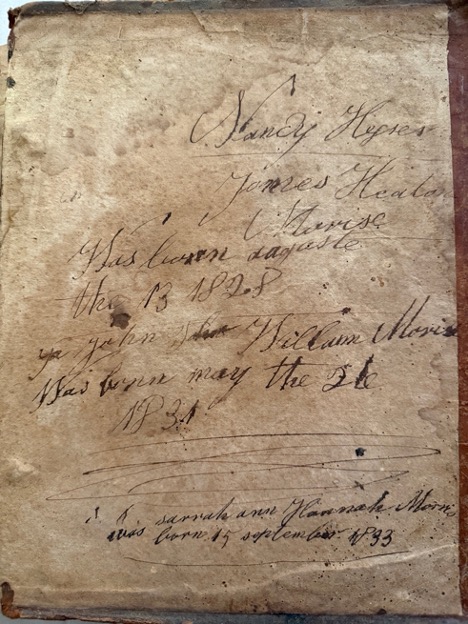 Nancy Hegses
James Heaton
Morise
Was born auguste
the 13 1828
john William Moris
Was born may the 26
1831
sarrah ann Hannah Morris
was born 15 september 1833